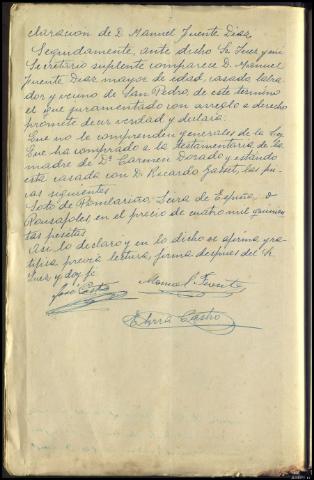 claracion de D. Manuel Fuente Diaz
Seguidamente, ante dicho Sr. Juez y mi
Secretario suplente comparece D. Manuel
Fuente Diaz mayor de edad, casado labra-
dor y vecino de San Pedro, de este término
el que juramentado con arreglo a derecho
promete decir verdad y declara:
Que no le comprenden generales de la Ley
Que ha comprado a la testamentaria de la
madre de Dª Carmen Dorado y estando
esta casada con D. Ricardo Gasset, las fin-
cas siguientes
Soto de Romelariño, Seira de España, o
Pousafoles en el precio de cuatro mil quinien
tas pesetas
Asi lo declaro y en lo dicho se afirma y ra-
tifica previa lectura, firma despues del Sr.
Juez y doy fe
José Castro Manuel Fuente
Castro